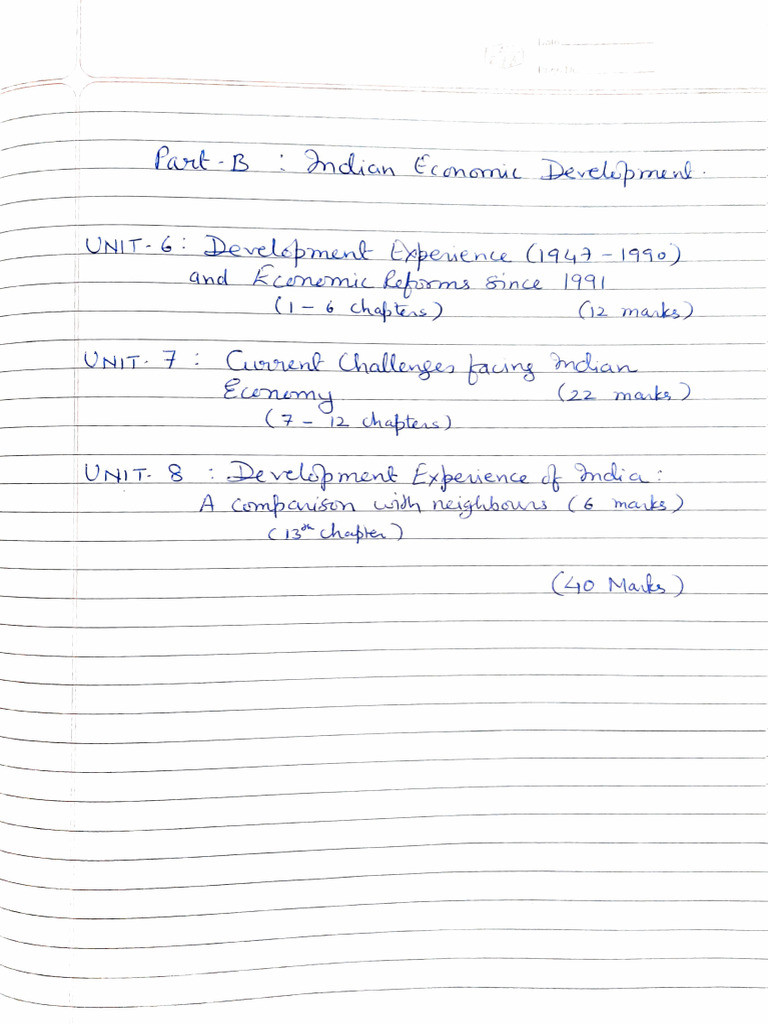 Part-B : Indian Economic Development.
UNIT-6: Development Experience (1947-1990)
and Economic Reforms since 1991
(1-6 chapters) (12 marks)
UNIT-7 : Current Challenges facing Indian
Economy (22 marks)
(7-12 chapters)
UNIT-8 : Development Experience of India:
A comparison with neighbours (6 marks)
(13th chapter)
(40 Marks)